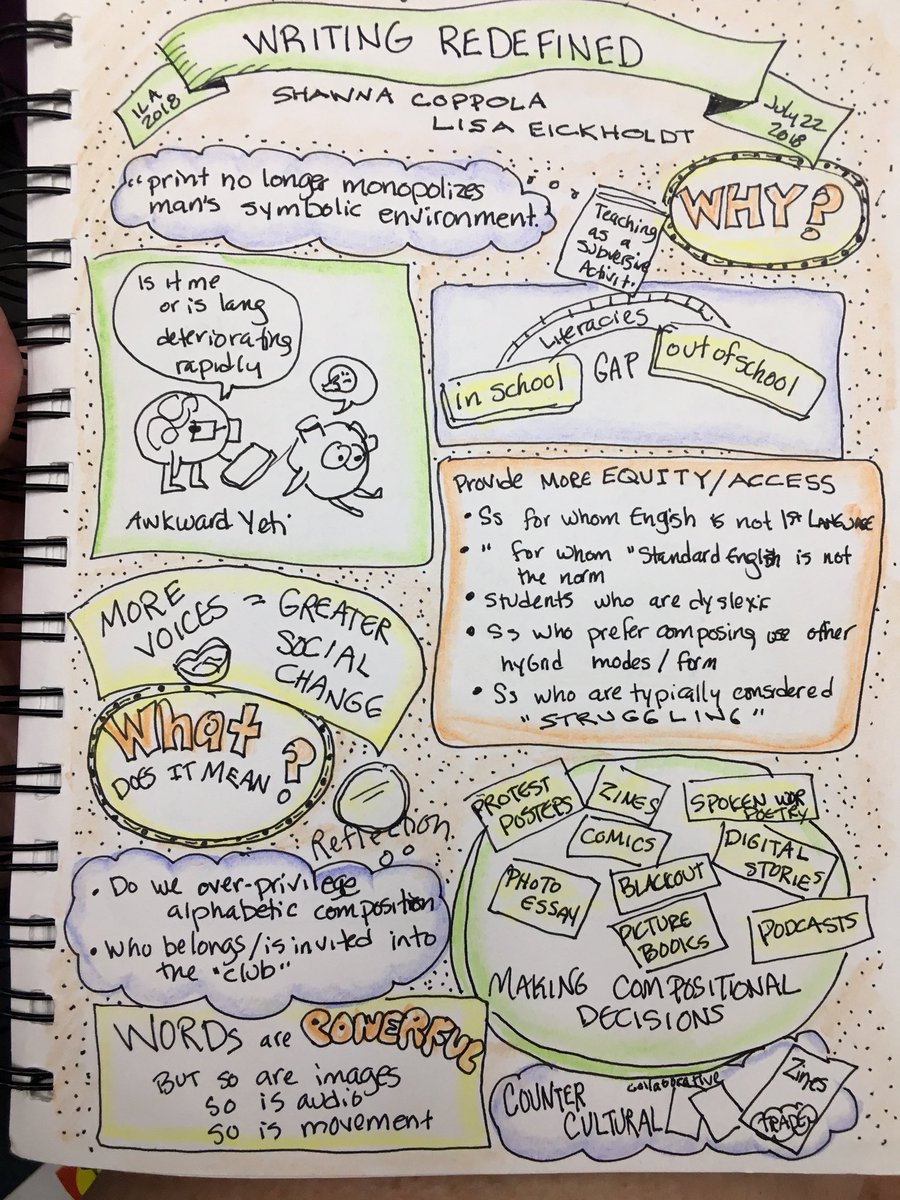 WRITING REDEFINED
ILA
2018
SHANNA COPPOLA
LISA EICKHOLDT
July 22
2018
"print no longer monopolizes
man's symbolic environment.
Teaching
as a
subversive
Activit.
WHY?
Is it me
or is lang
deteriorating
rapidly
AWKWARD Yeti
Literacies
in school
GAP
out of school
Provide MORE EQUITY/ACCESS
• Ss for whom Engish is not 1st LANGUAGE
• " for whom "Standard English is not
the norm
• Students who are dyslexic
• Ss who prefer composing use other
hybrid modes / form
• Ss who are typically considered
"STRUGGLING"
MORE
VOICES = GREATER
SOCIAL
CHANGE
What
DOES IT MEAN?
Reflection
• Do we over-privilege
alphabetic composition
• Who belongs/is invited into
the "club"
PROTEST
POSTERS
ZINES
SPOKEN WOR
POETRY
COMICS
DIGITAL
STORIES
PHOTO
ESSAY
BLACKOUT
PICTURE
BOOKS
PODCASTS
MAKING COMPOSITIONAL
DECISIONS
WORDs are POWERFUL
BUT so are images
so is audio
so is movement
COUNTER
CULTURAL
collaborative
Zines
TRADE